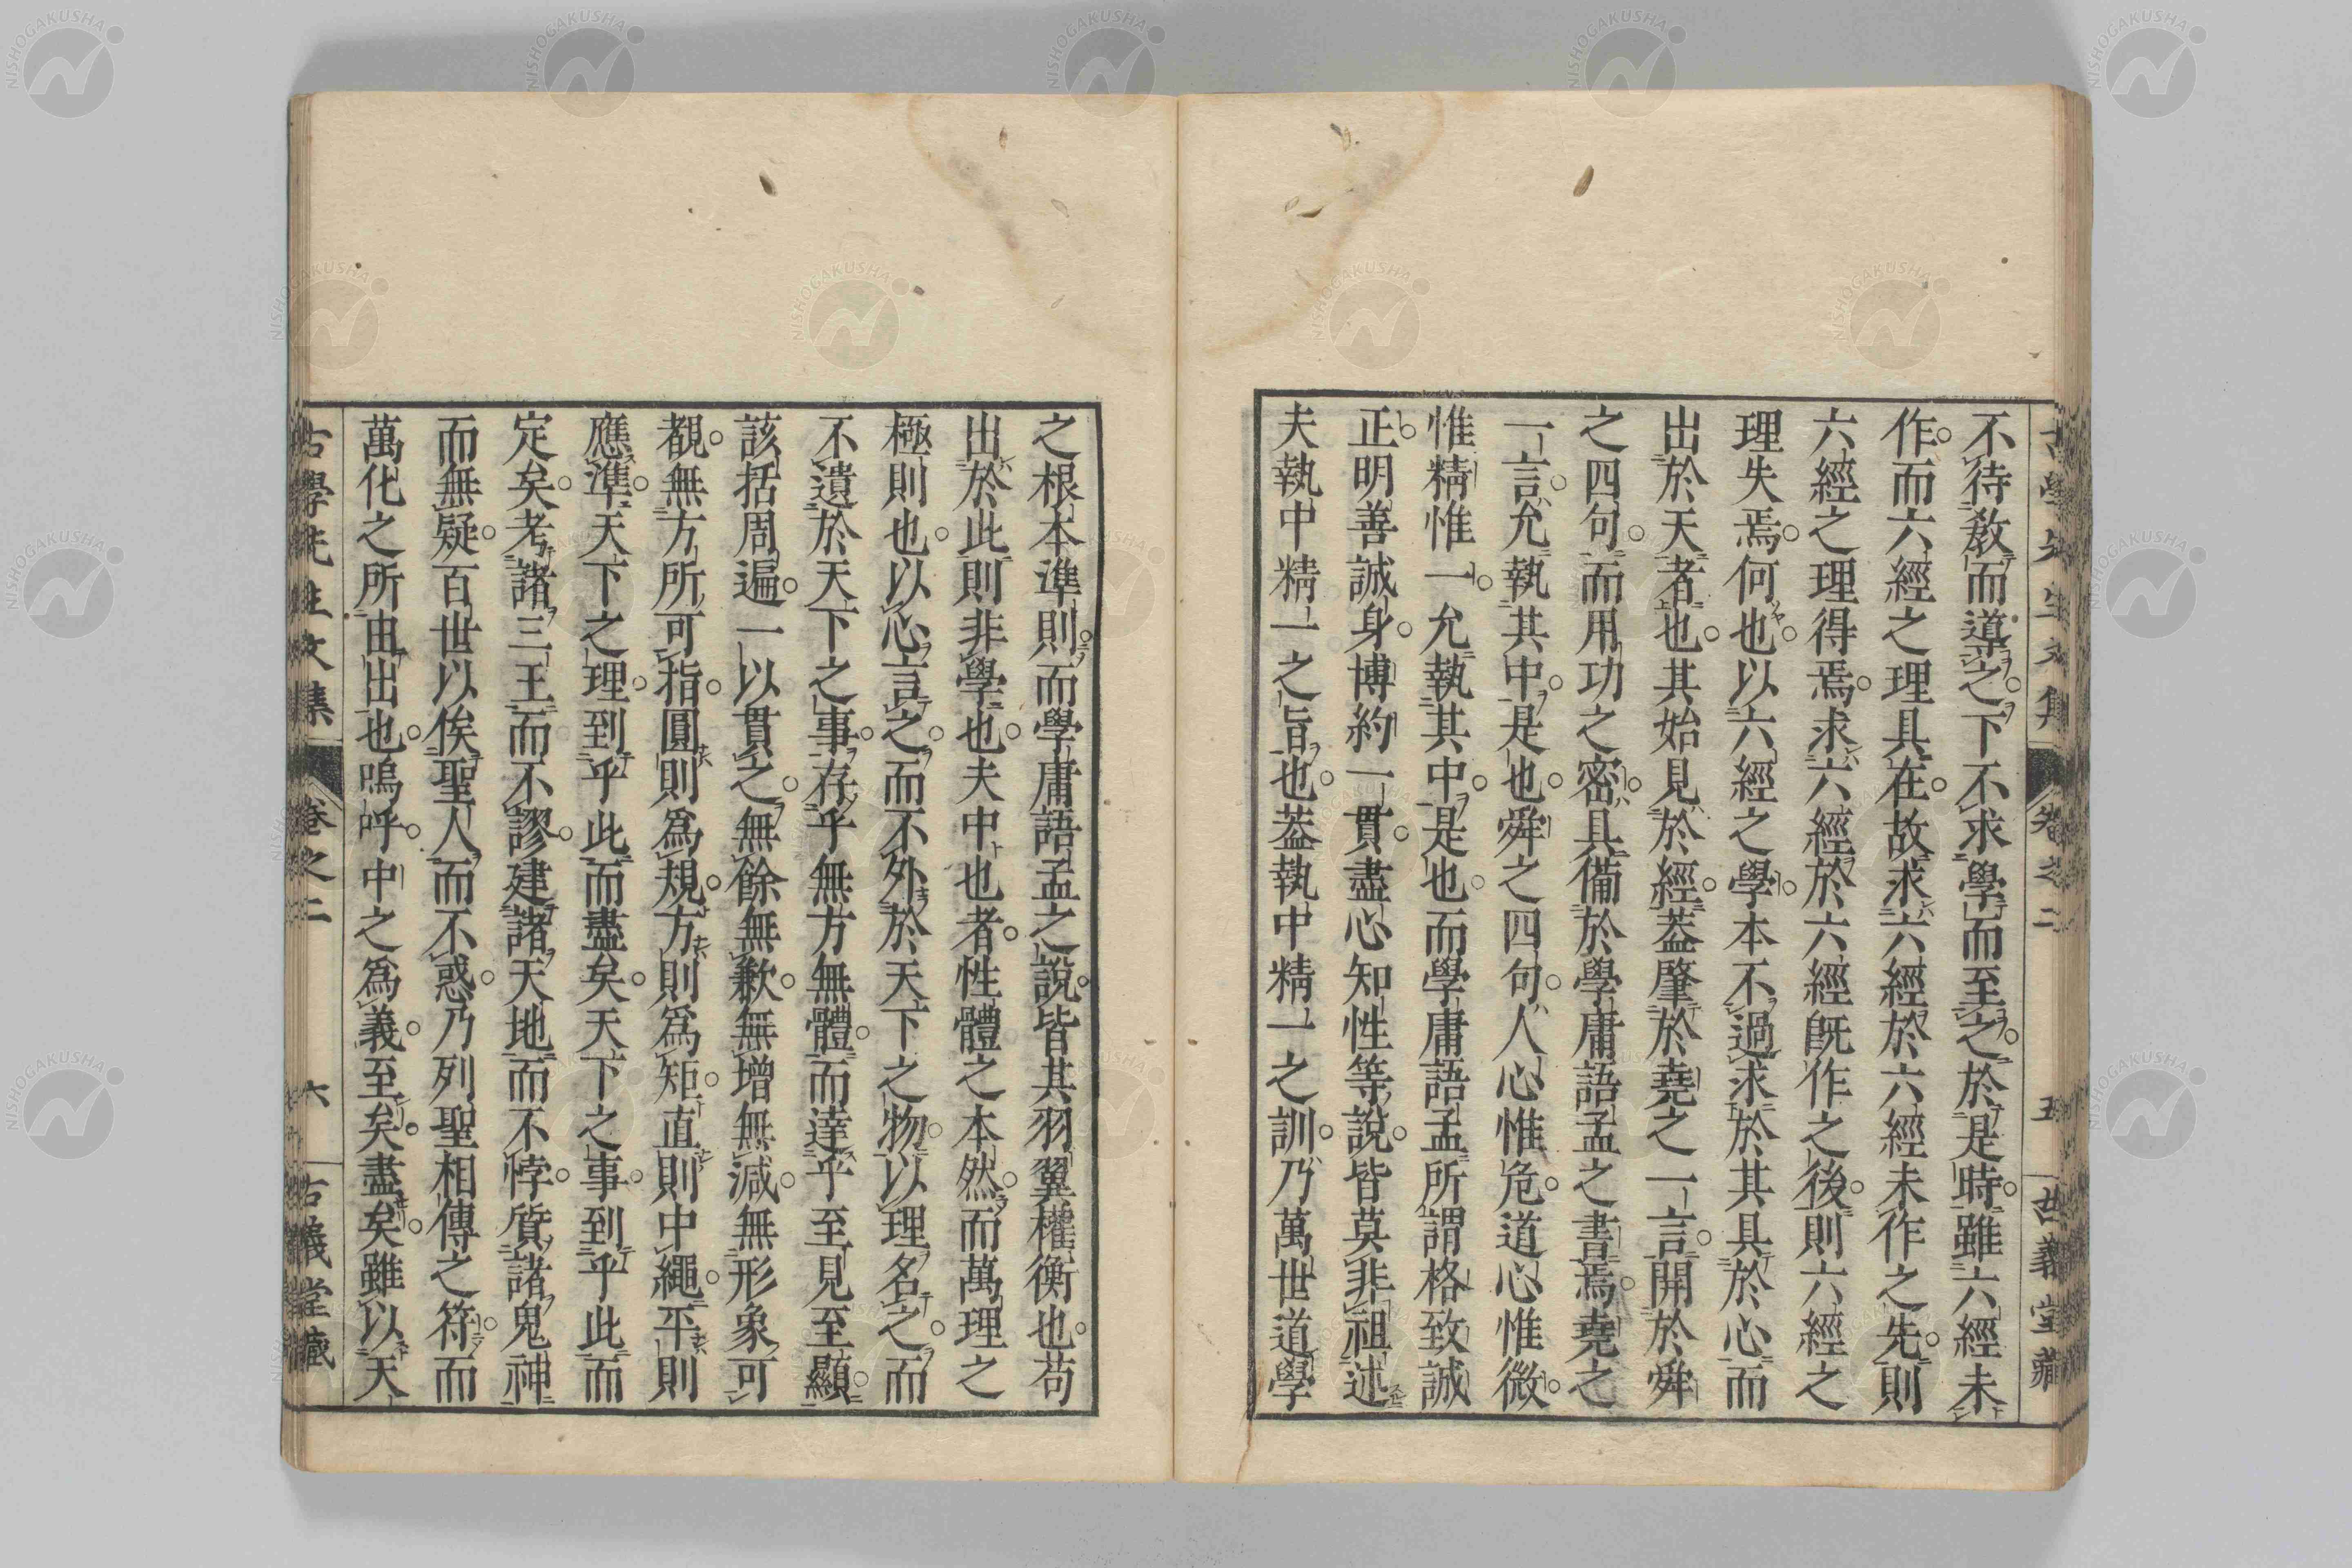 古學先生文集 卷之二 五 古義堂藏
不待教而導之。下不求學而至之。於是時。雖六經未
作。而六經之理具在。故求六經於六經未作之先。則
六經之理得焉。求六經於六經旣作之後。則六經之
理失焉。何也。以六經之學。本不過求於其具於心而
出於天者也。其始見於經。葢肇於堯之一言。開於舜
之四句。而用功之密。具備於學庸語孟之書焉。堯之
一言。允執其中。是也。舜之四句。人心惟危。道心惟微。
惟精惟一。允執其中。是也。而學庸語孟所謂格致誠
正。明善誠身。博約一貫。盡心知性等說。皆莫非祖述
夫執中精一之旨也。葢執中精一之訓。乃萬世道學
之根本準則。而學庸語孟之說。皆其羽翼權衡也。苟
出於此則非學也。夫中也者。性體之本然。而萬理之
極則也。以心言之。而不外於天下之物。以理名之。而
不遺於天下之事。存乎無方無體。而達乎至見至顯。
該括周遍。一以貫之。無餘無歉。無增無減。無形象可
覩。無方所可指。圓則爲規。方則爲矩。直則中繩。平則
應準。天下之理。到乎此而盡矣。天下之事。到乎此而
定矣。考諸三王而不謬。建諸天地而不悖。質諸鬼神
而無疑。百世以俟聖人而不惑。乃列聖相傳之符。而
萬化之所由出也。嗚呼。中之爲義。至矣。盡矣。雖以天
古學先生文集 卷之二 六 古義堂藏
NISHOGAKUSHA